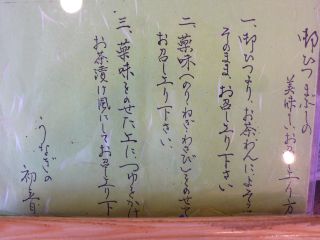 御ひつまぶしの
美味しいお召し上り方
一、御ひつより、お茶わんによそう
そのままお召し上り下さい
二、薬味(のりねぎわさび)をのせて
お召し上り下さい
三、薬味をのせた上に、つゆをかけ
お茶漬け風にしてお召し上り下
うなぎの
初音